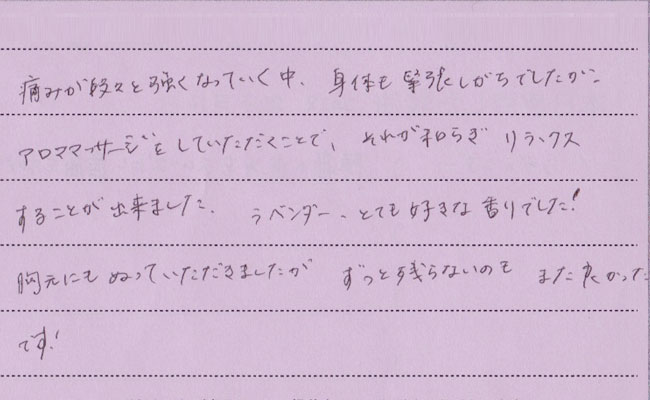 痛みが段々と強くなっていく中、身体も緊張しがちでしたが、
アロママッサージをしていただくことで、それが和らぎリラックス
することが出来ました。ラベンダー、とても好きな香りでした!
胸元にもぬっていただきましたがずっと残らないのもまた良かった
です!